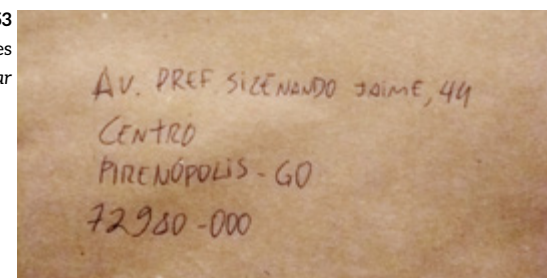 53
es
ar
AV. PREF. SIZENANDO JAIME, 44
CENTRO
PIRENÓPOLIS - GO
72980-000